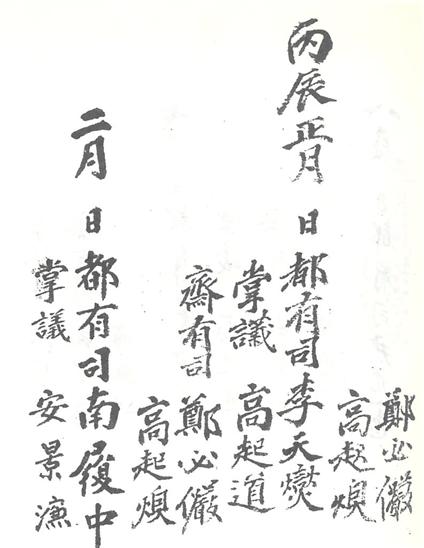 鄭必儼
高起煥
丙辰正月 日都有司李天燮
掌議 高起道
齋有司 鄭必儼
高起煥
二月 日都有司南履中
掌議 安景濂